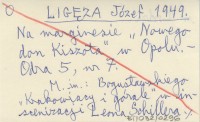 O LIGĘZA Józef 1949.
Na marginesie „Nowego
don Kiszota" w Opolu.-
Odra 5, nr 7.
M. in.: Bogusławskiego
„Krakowiacy i górale" w in-
scenizacji Leona Schillera.